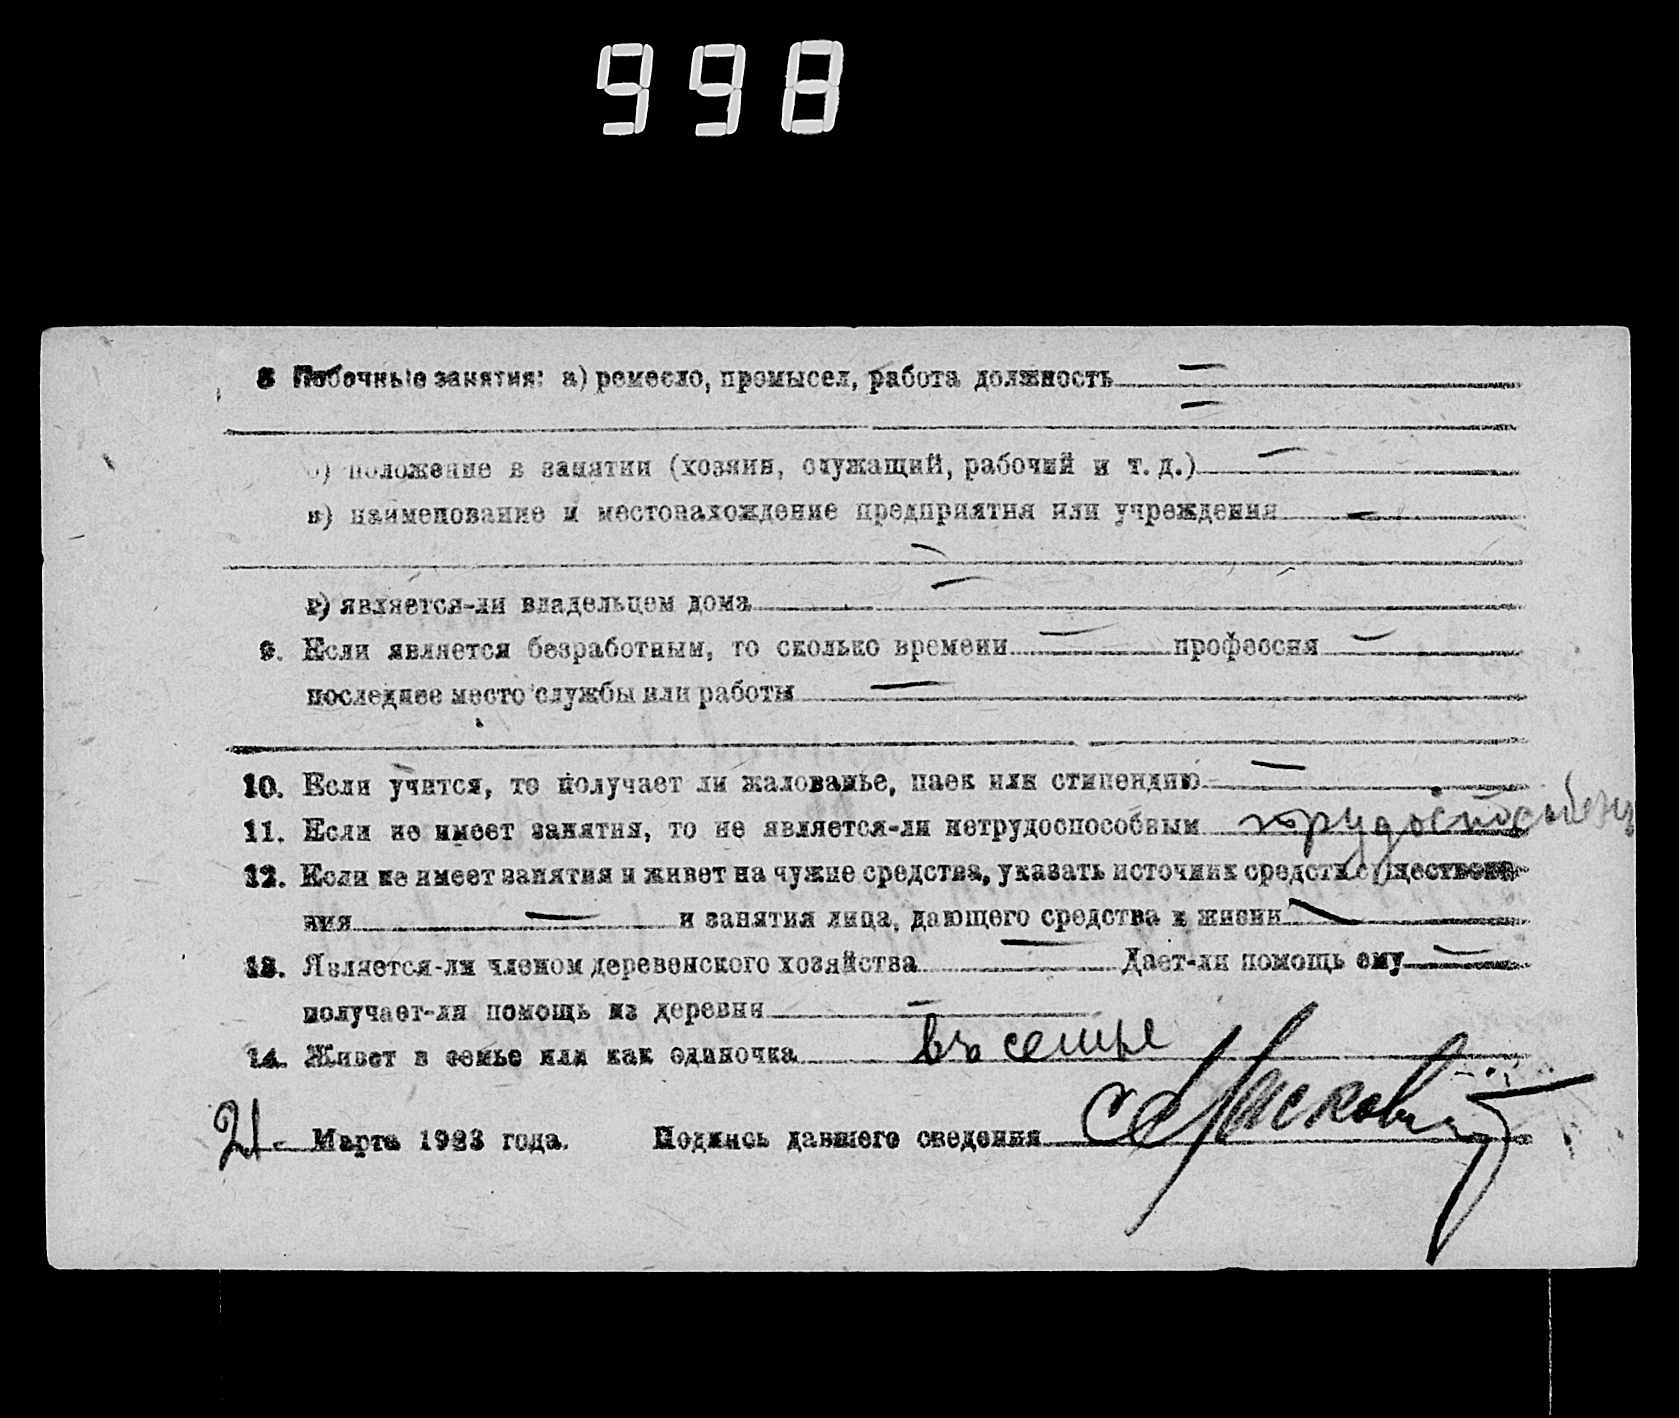 998
8 Побочные занятия: а) ремесло, промысел, работа должность — 
—
б) положение в занятии (хозяин, служащий, рабочий и т. д.) —
в) наименование и местонахождение предприятия или учреждения —
—
г) является-ли владельцем дома —
9. Если является безработным, то сколько времени — профессия —
последнее место службы или работы —
10. Если учится, то получает ли жалованье, паек или стипендию —
11. Если не имеет занятия, то не является-ли нетрудоспособным трудоспособен
12. Если не имеет занятия и живет на чужие средства, указать источник средств существова-
ния — и занятия лица, дающего средства к жизни —
13. Является-ли членом деревенского хозяйства — Дает-ли помощь ему —
получает-ли помощь из деревни —
14. Живет в семье или как одиночка въ семье
21 Марта 1923 года. Подпись давшего сведения